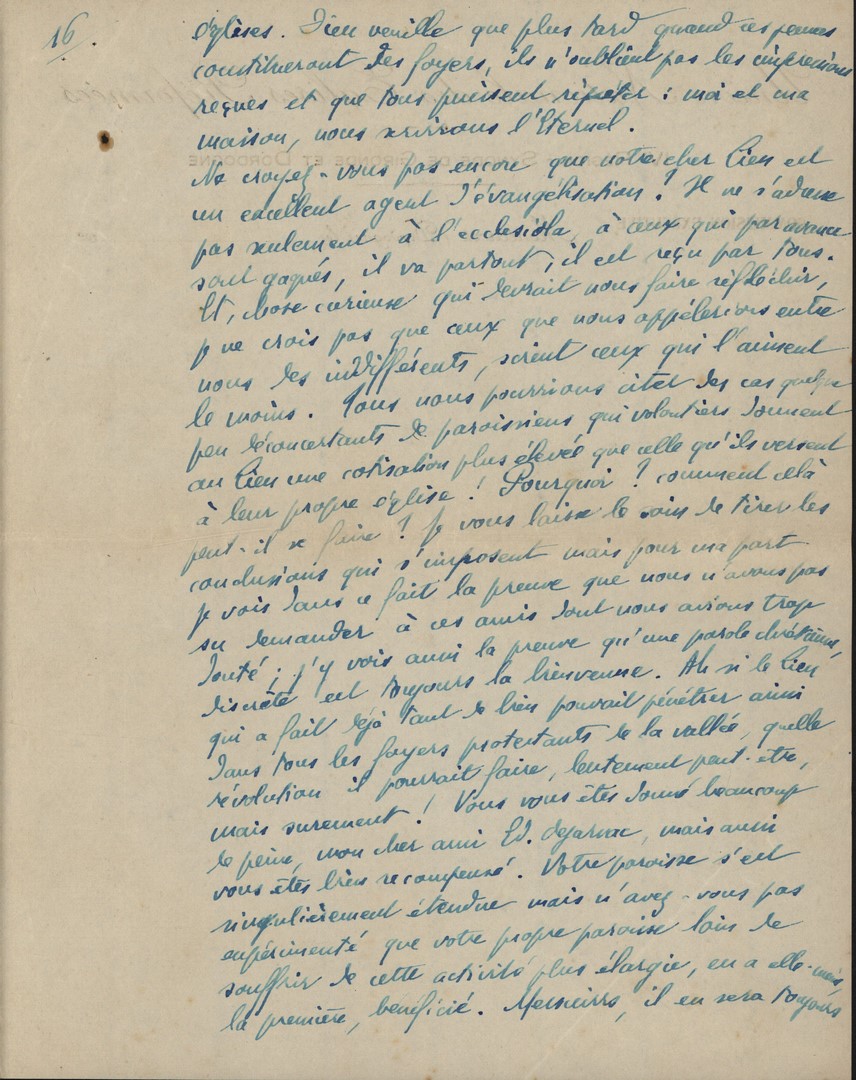 16.
églises. Dieu veuille que plus tard quand ces jeunes
constitueront des foyers, ils n'oublient pas les impressions
reçues et que tous puissent répéter : moi et ma
maison, nous servirons l'Eternel.
Ne croyez-vous pas encore que notre cher Lien est
un excellent agent d'évangélisation ? Il ne s'adresse
pas seulement à l'ecclesiola, à ceux qui par avance
sont gagnés, il va partout, il est reçu par tous.
Et, chose curieuse qui devrait nous faire réfléchir,
je ne crois pas que ceux que nous appelerions entre
nous des indifférents, soient ceux qui l'aiment
le moins. Tous nous pourrions citer des cas quelque
peu déconcertants de paroissiens qui volontiers donnent
au Lien une cotisation plus élevée que celle qu'ils versent
à leur propre église ! Pourquoi ? comment cela
peut-il se faire ? Je vous laisse le soin de tirer les
conclusions qui s'imposent mais pour ma part
je vois dans ce fait la preuve que nous n'avons pas
su demander à ces amis dont nous avions trop
douté ; j'y vois aussi la preuve qu'une parole chrétienne,
discrète est toujours la bienvenue. Ah si le Lien
qui a fait déjà tant de bien pouvait pénétrer ainsi
dans tous les foyers protestants de la vallée, quelle
révolution il pourrait faire, lentement peut-être,
mais surement ! Vous vous êtes donné beaucoup
de peine, mon cher ami Ed. dejarnac, mais aussi
vous êtes bien recompensé. Votre paroisse s'est
singulièrement étendue mais n'avez-vous pas
expérimenté que votre propre paroisse loin de
souffrir de cette activité plus élargie, en a elle-même,
la première, bénéficié. Messieurs, il en sera toujours